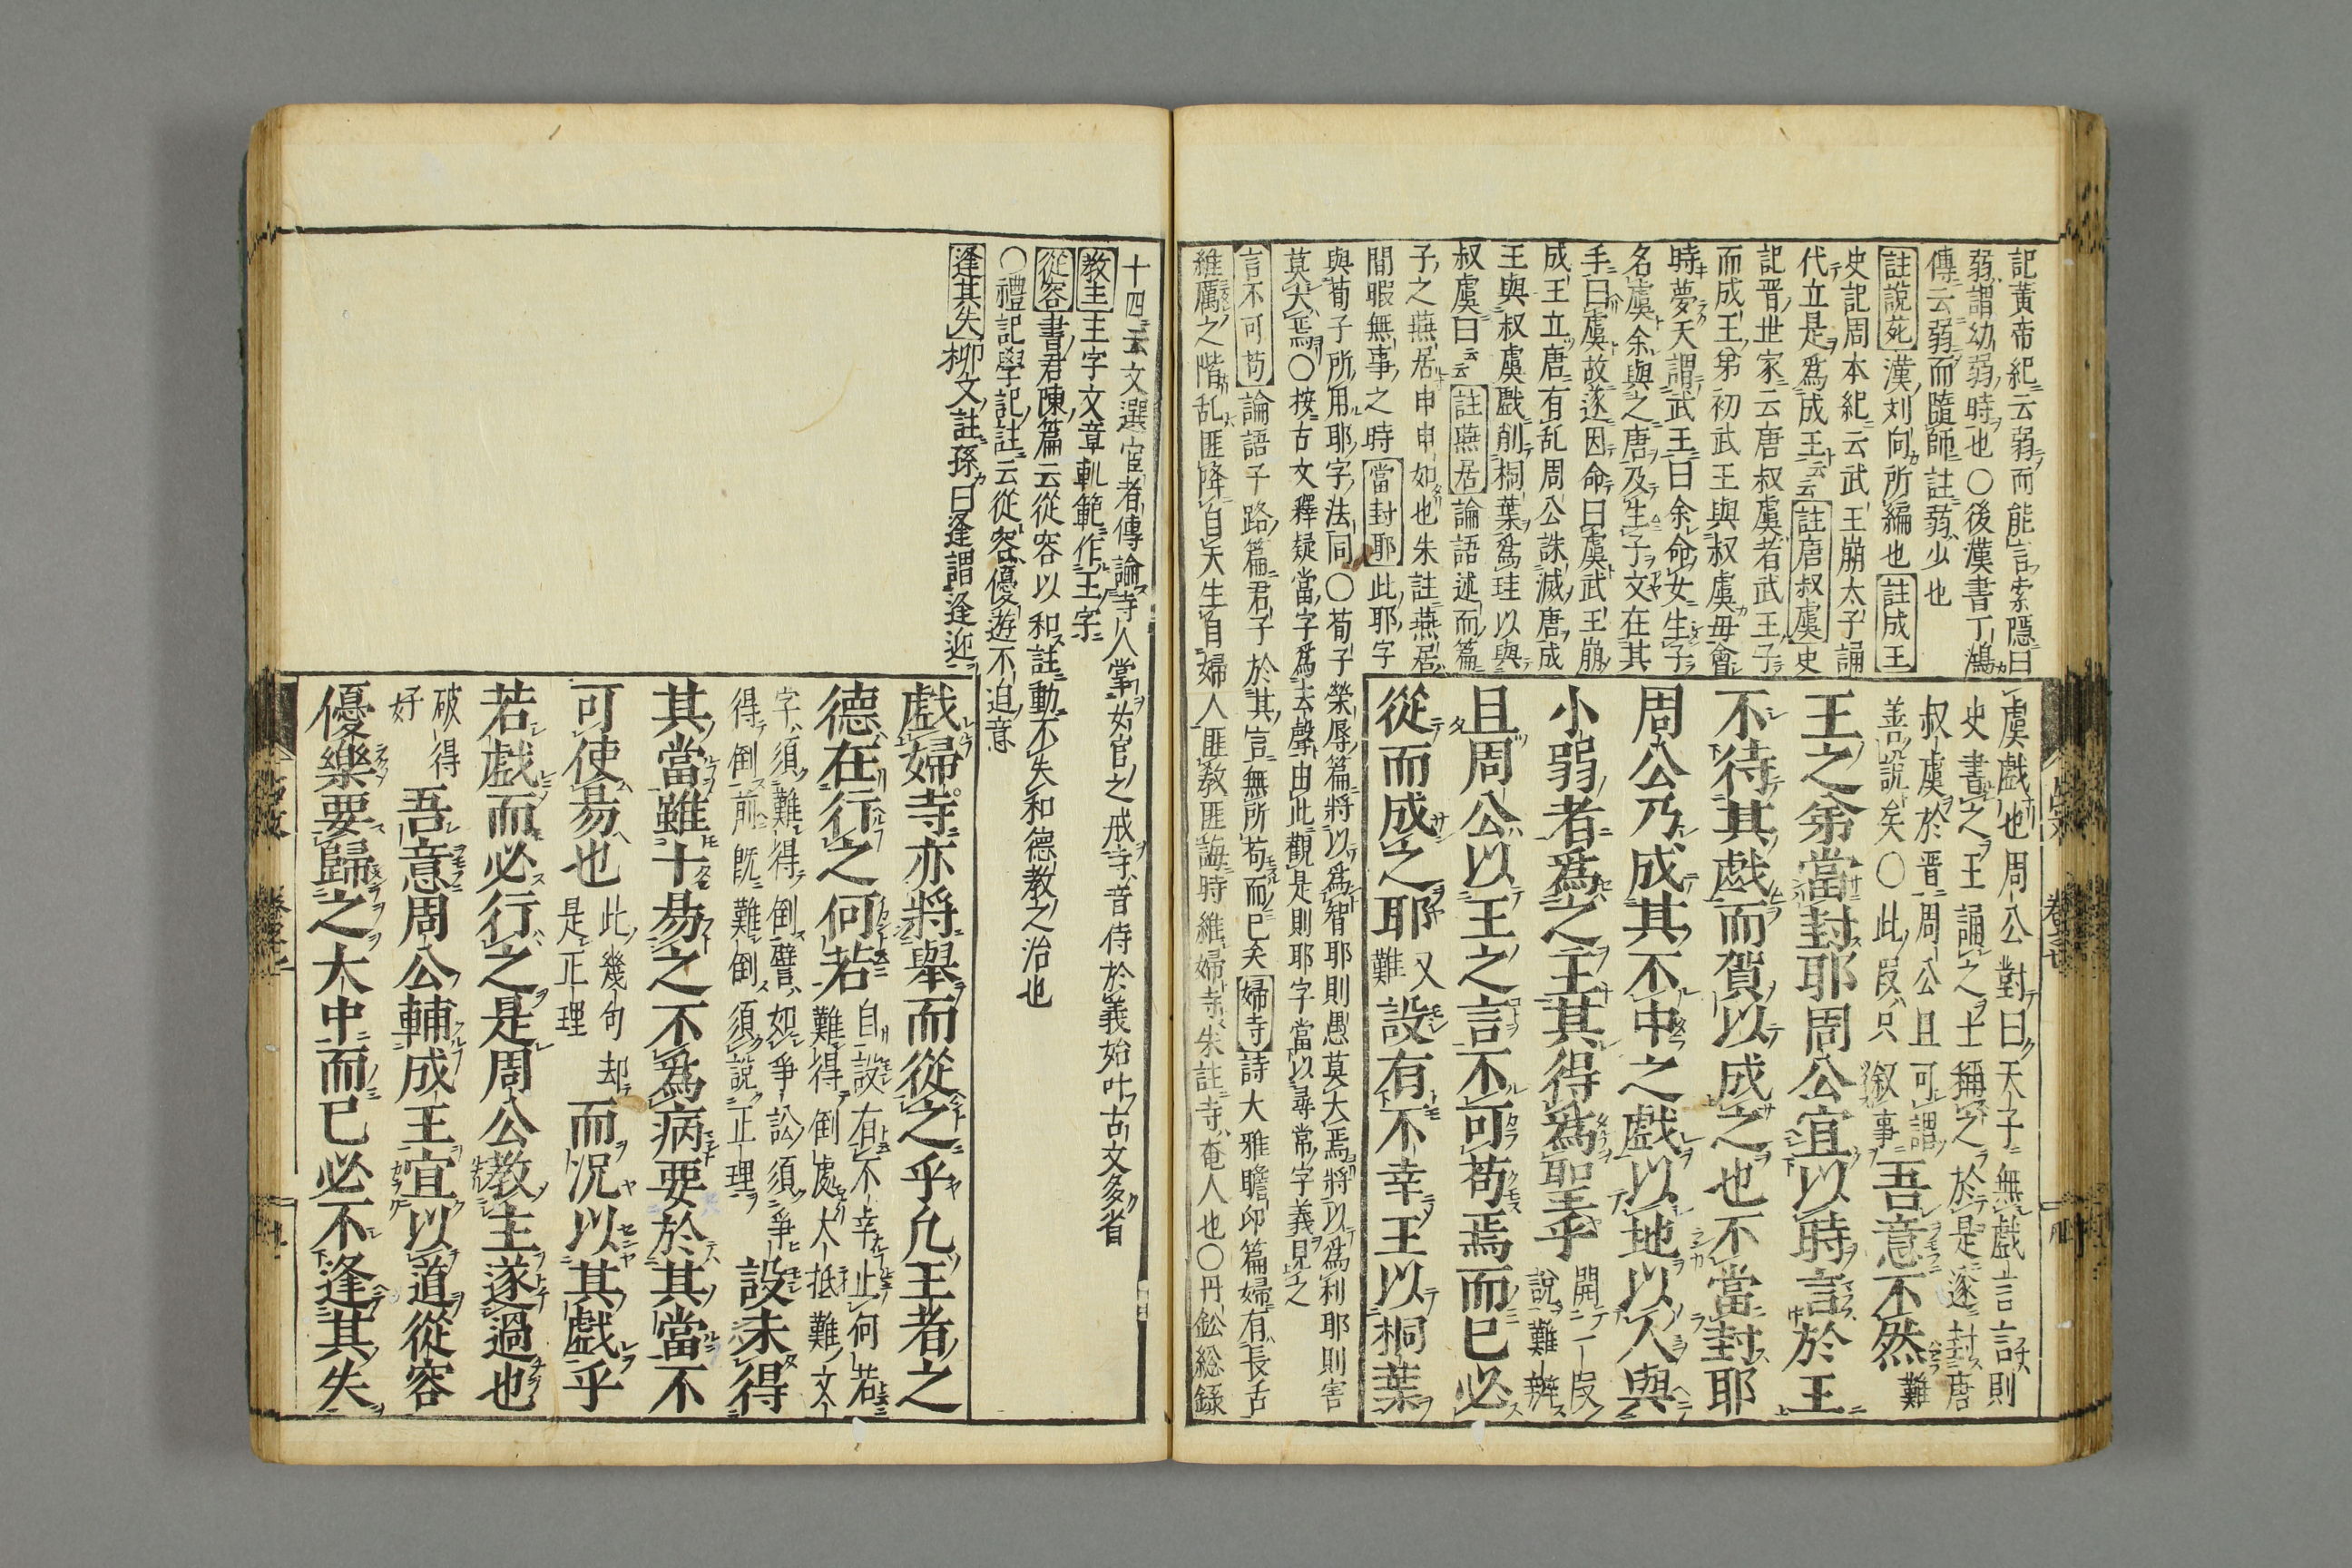 記黃帝紀云弱而能言索隱曰
弱謂幼弱時也〇後漢書丁鴻
傳云弱而隨師註弱少也
註說苑漢刘向所編也註成王
史記周本紀云武王崩太子誦
代立是爲成王云云註唐叔虞史
記晋世家云唐叔虞者武王子
而成王弟初武王與叔虞母會
時夢天謂武王曰余命女生子
名虞余與之唐及生子文在其
手曰虞故遂因命曰虞武王崩
成王立唐有乱周公誅滅唐成
王與叔虞戲削桐葉爲珪以與
叔虞曰云云註燕居論語述而篇
子之燕居申申如也朱註燕居
間暇無事之時當封耶此耶字
與荀子所用耶字法同〇荀子榮辱篇將以爲智耶則愚莫大焉將以爲利耶則害
莫大焉〇按古文釋疑當字爲去聲由此觀是則耶字當以尋常字義見之
言不可苟論語子路篇君子於其言無所苟而已矣婦寺詩大雅瞻卬篇婦有長舌
維厲之階乱匪降自天生自婦人匪教匪誨時維婦寺朱註寺奄人也〇丹鉛総録
虞戲也周公對曰天子無戲言言則
史書之王誦之士稱之於是遂封唐
叔虞於晋周公且可謂
善說矣〇此叚只叙事吾意不然難
王之弟當封耶周公宜以時言於王
不待其戲而賀以成之也不當封耶
周公乃成其不中之戲以地以人與
小弱者爲之主其得爲聖乎開二一叚說難辨
且周公以王之言不可苟焉而已必
從而成之耶又難設有不幸王以桐葉
十四云文選宦者傳論寺人掌女官之戒寺音侍於義始叶古文多省
教主王字文章軌範作王字
從容書君陳篇云從容以和註動不失和德教之治也
〇禮記學記註云從容優遊不迫意
逢其失柳文註孫曰逢謂逢迎
戲婦寺亦將舉而從之乎凢王者之
德在行之何若自設有不幸止何若難得倒處大抵難文
字須難得倒譬如爭訟須爭得倒前旣難倒須說正理設未得
其當雖十易之不爲病要於其當不
可使易也此幾句却是正理而況以其戲乎
若戲而必行之是周公教主遂過也
破得好吾意周公輔成王宜以道從容
優樂要歸之大中而已必不逢其失